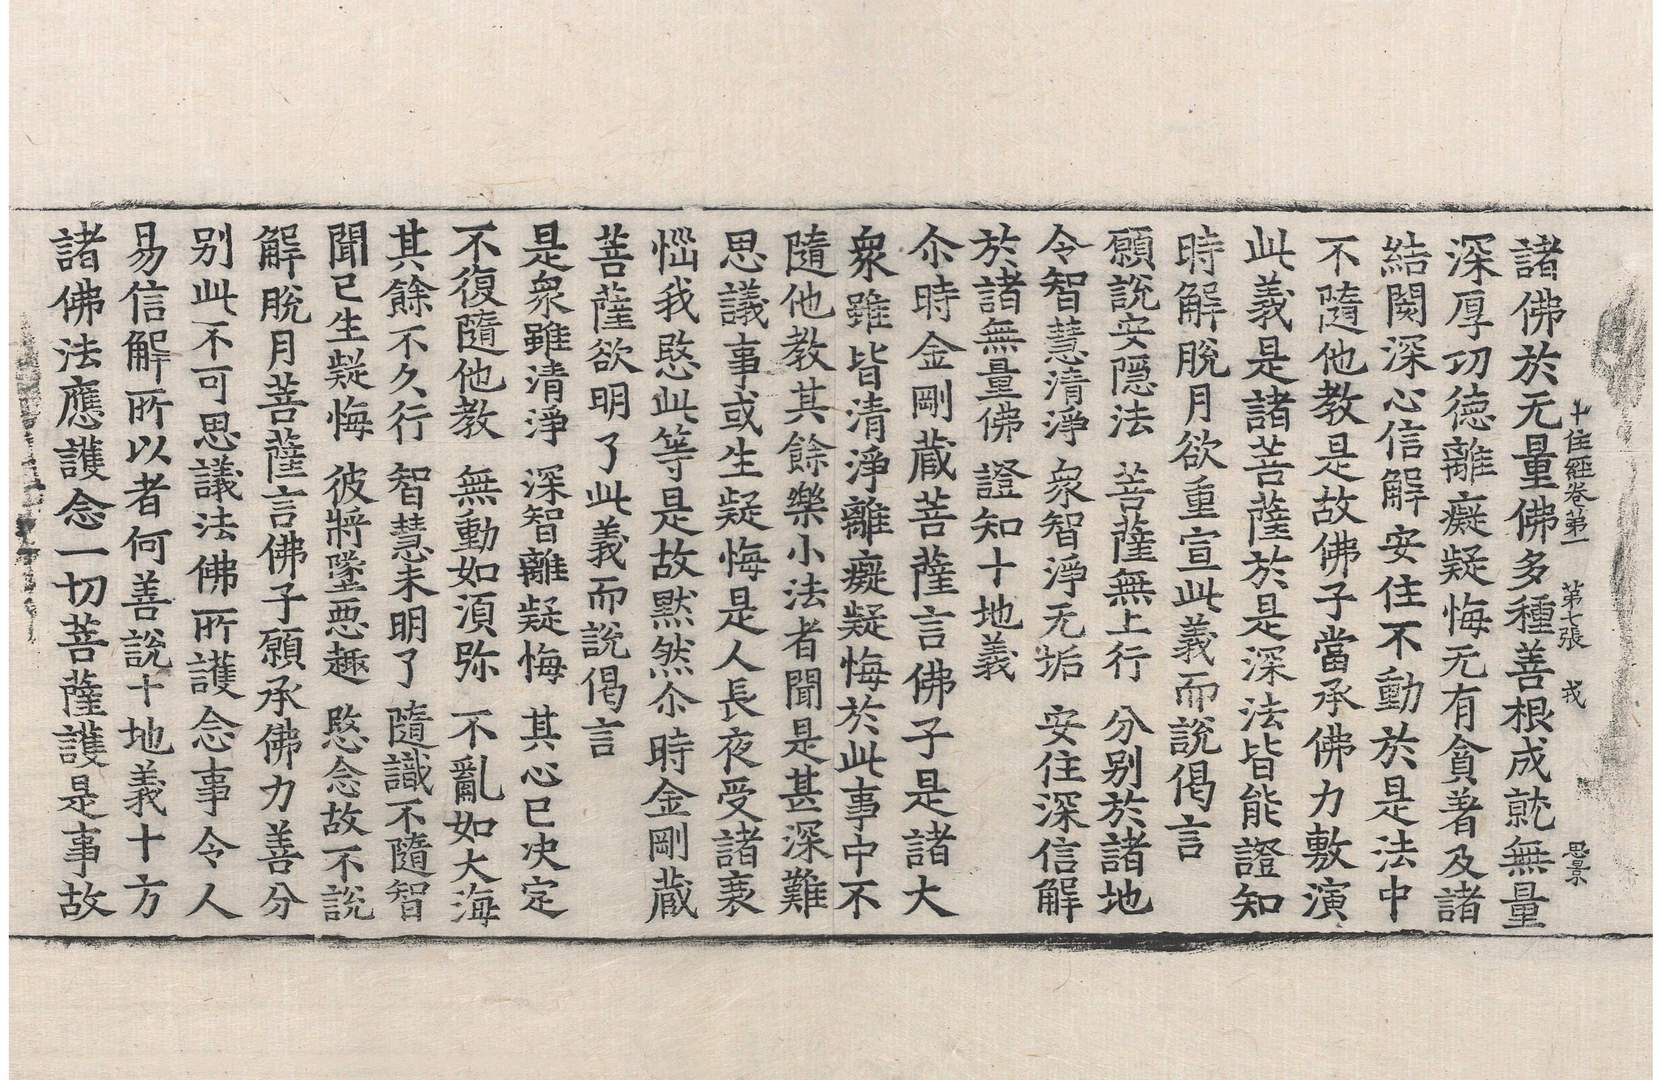 十住經卷第一　第七張　戎　思景
諸佛於无量佛多種善根成就無量
深厚功德離癡疑悔无有貪著及諸
結閡深心信解安住不動於是法中
不隨他教是故佛子當承佛力敷演
此義是諸菩薩於是深法皆能證知
時解脫月欲重宣此義而說偈言
願說安隱法　菩薩無上行　分別於諸地
令智慧清淨　衆智淨无垢　安住深信解
於諸無量佛　證知十地義
尒時金剛蔵菩薩言佛子是諸大
衆雖皆清淨離癡疑悔於此事中不
隨他教其餘樂小法者聞是甚深難
思議事或生疑悔是人長夜受諸衰
惱我愍此等是故默然尒時金剛蔵
菩薩欲明了此義而說偈言
是衆雖清淨　深智離疑悔　其心已决定
不復隨他教　無動如湏弥　不亂如大海
其餘不久行　智慧未明了　隨識不隨智
聞已生疑悔　彼將墜惡趣　愍念故不說
解脫月菩薩言佛子願承佛力善分
别此不可思議法佛所護念事令人
易信解所以者何善說十地義十方
諸佛法應護念一切菩薩護是事故